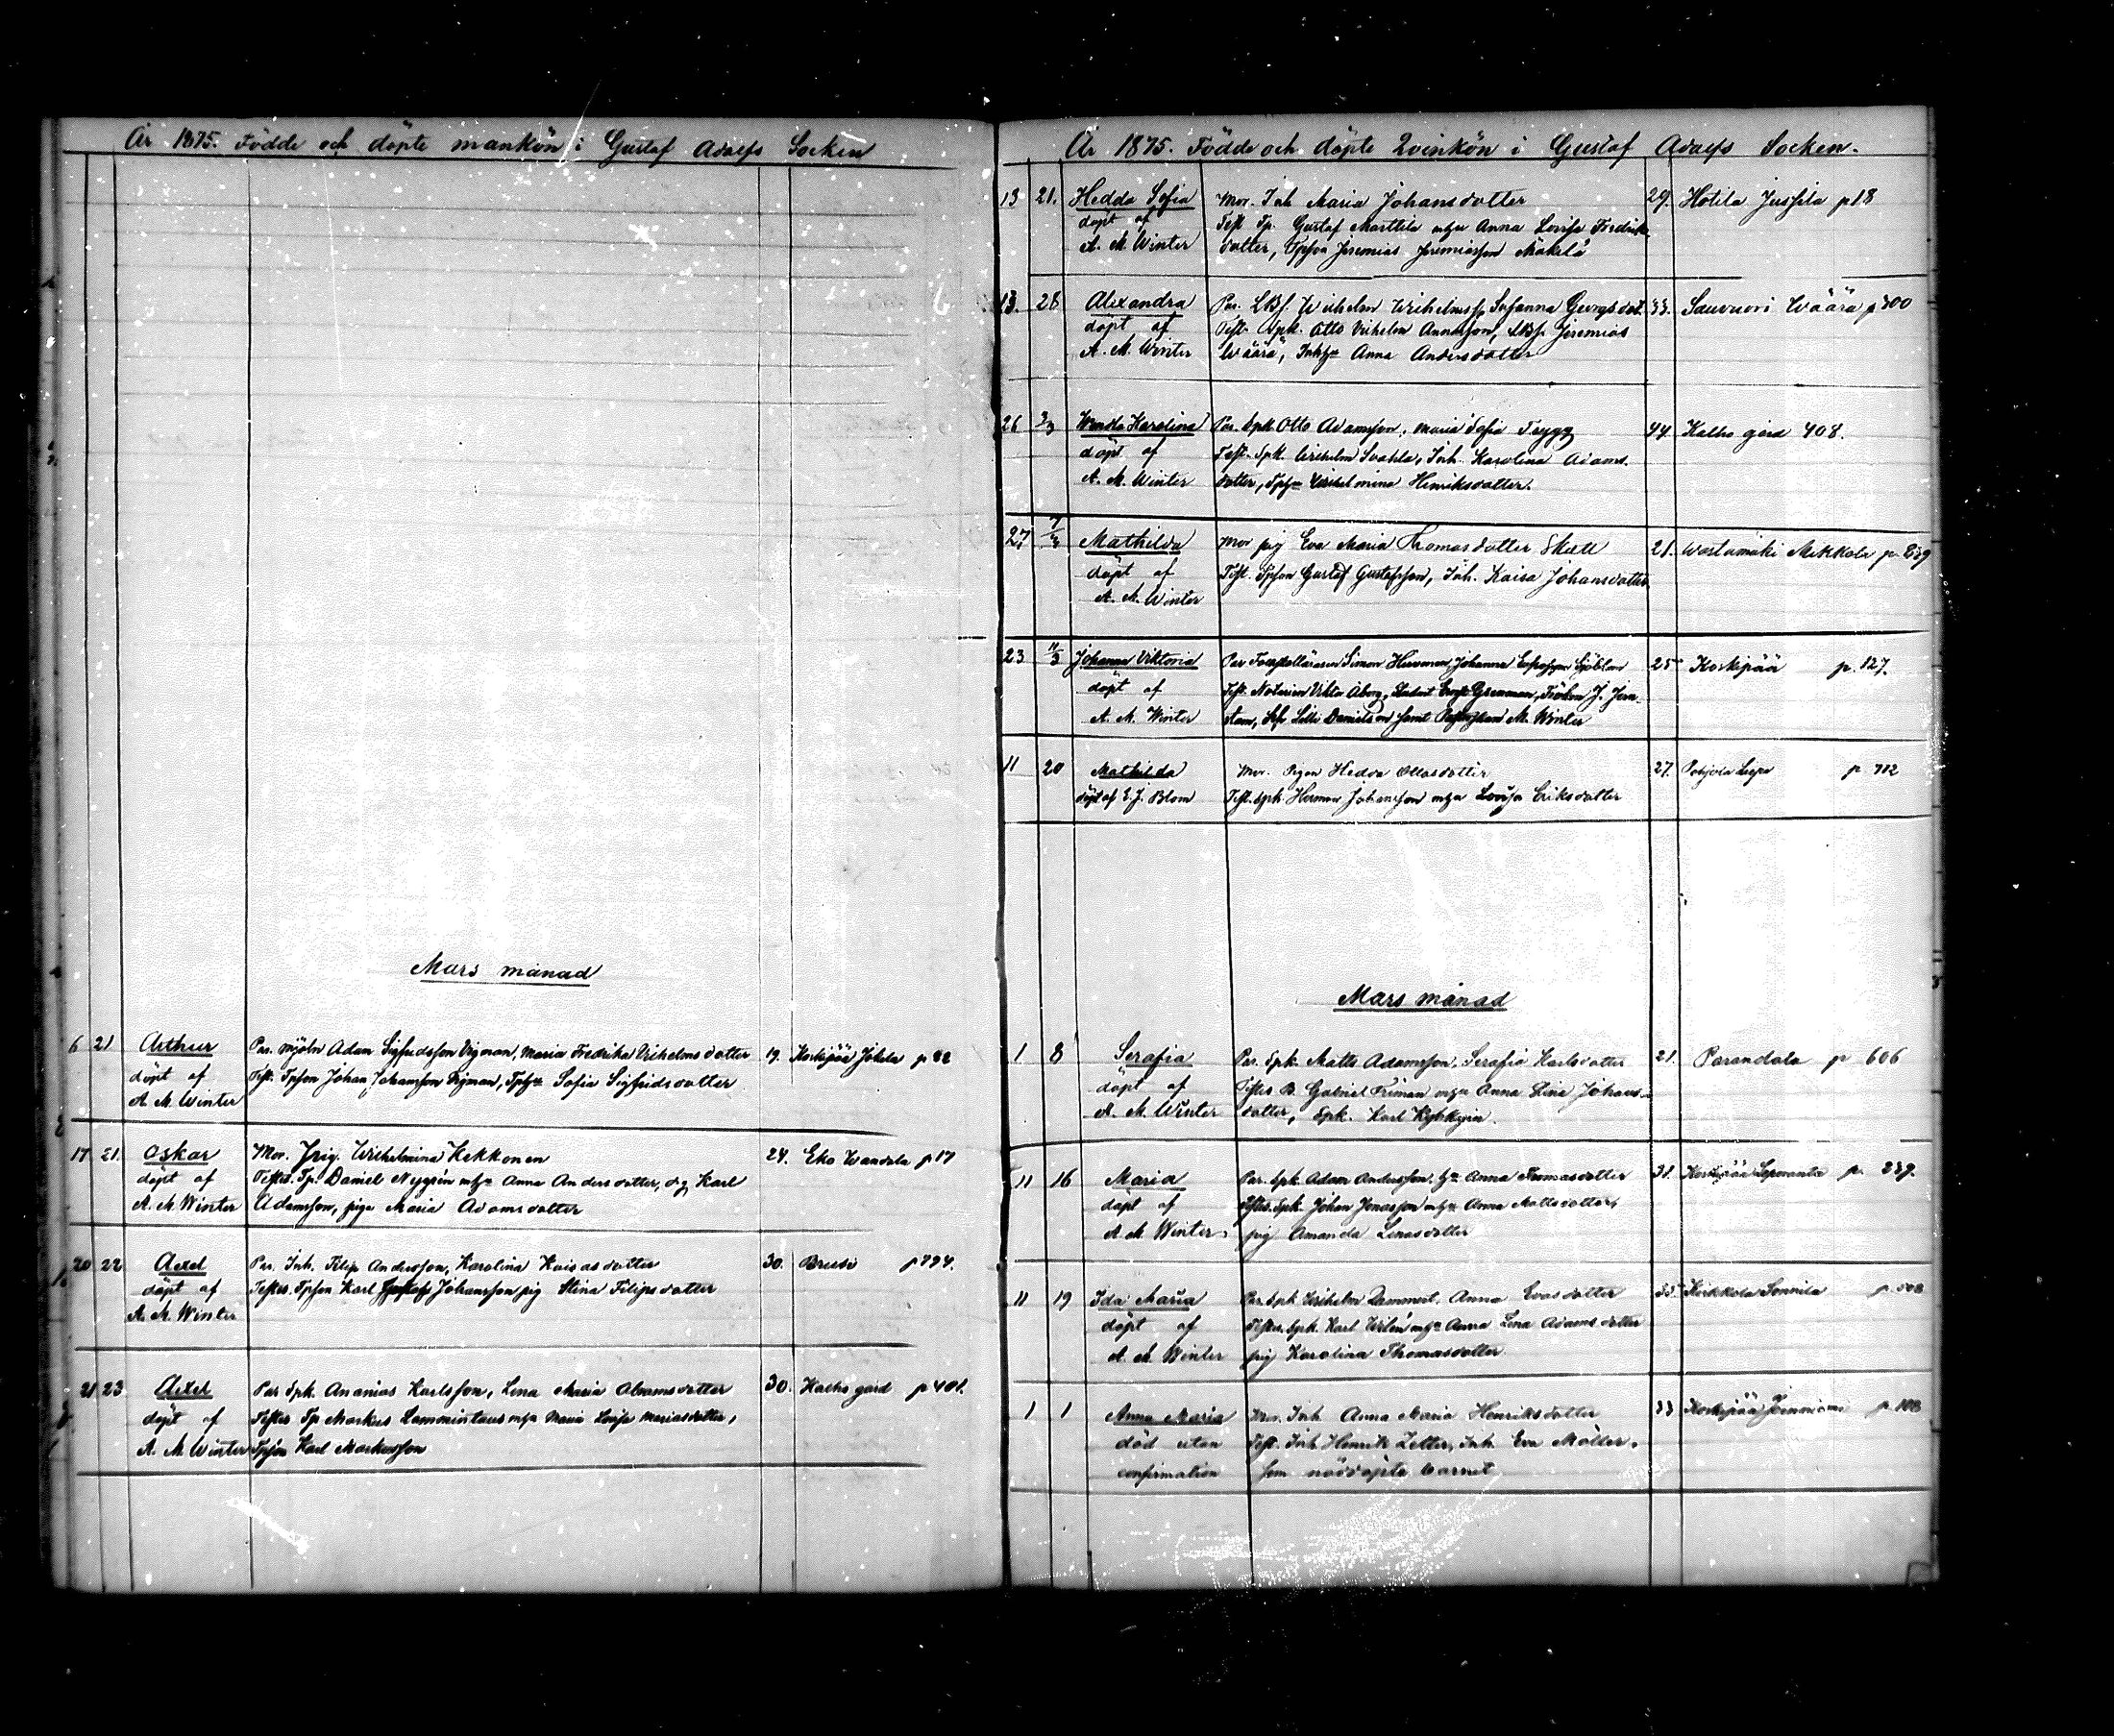 År 1875. Födde och döpte mankön i Gustaf Adolfs Socken
Mars månad
6 21 Arthur Par. Mjöln Adam Sigfridsson Vigman, Maria Fredrika Vilhelms dotter 19. Koskipää Jokela p 82
döpt af Test. Tpson Johan Johansson Sigman, Tpha Sofia Sigfridsdotter
A. M. Winter
17 21. Oskar Mor. Jpig. Wilhelmina Kekkonen 24. Eko Wandela p 17
döpt af Testes. Tp. Daniel Nygrén mha Anna Andersdotter, dg Karl
A. M. Winter Adamsson, piga Maria Adamsdotter
20 22 Axel Par. Inh. Filip Andersson, Karolina Kaisasdotter 30. Bruusi p 794.
döpt af Testes. Tpson Karl Johansson pig Stina Filipsdotter
A. M. Winter
21 23 Axel Par Spk. Ananias Karlsson, Lena Maria Abramsdotter 30. Kalho gård p 401.
döpt af Testes Tp Markus Lammintaus mha Maria Lovisa Mariasdotter,
A. M. Winter Tpson Karl Markusson
År 1875. Födde och döpte Qvinkön i Gustaf Adolfs Socken.
13 21. Hedda Sofia Mor. Inh Maria Johansdotter 29. Hotila Jussila p 18
döpt af Test Tp. Gustaf Marttila mha Anna Lovisa Fredriks
A. M. Winter dotter, Tpson Jeremias Jeremiasson Mäkelä
13. 28 Alexandra Par. LBf. Wilhelm Wilhelmsson, Susanna Georgsdot. 33. Sauvuori Wäärä p 300
döpt af Test. Spk. Otto Vilhelm Annasson, LBf. Jeremias
A. M. Winter Wäärä, Inha Anna Andersdotter
26 3/3 Wenda Karolina Par. Spk Otto Adamsson, Maria Sofia Trygg 44. Kalho gård 408.
döpt af Test. Spk. Wilhelm Svahla, Inh. Karolina Adams
A. M. Winter dotter, Tpha Wilhelmina Henriksdotter.
27 7/3 Mathilda Mor pig Eva Maria Thomasdotter Skett 21. Wastamäki Mikkola p. 839
döpt af Test. Tpson Gustaf Gustafsson, Inh. Kaisa Johansdotter
A. M. Winter
23 11/3 Johanna Viktoria Par Simon Johanna Sjöblom 25 Koskipää p. 127.
döpt af Test. Notarien Viktor Åberg, Student Fröken J. Jern
A. M. Winter stam, Lilli Danielson samt M. Winter
11 20 Mathilda Mor. Pigan Hedda Ottosdotter 27. Pohjola Seppä p 712
döpt af E. J. Blom Test. Spk. Herman Johansson mha Lovisa Eriksdotter
Mars månad
1 8 Serafia Par. Spk. Matts Adamsson, Serafia Karlsdotter 21. Parandola p 606
döpt af Testes B. Gabriel Friman mha Anna Stina Johans
A. M. Winter dotter, Spk. Karl
11 16 Maria Par. Spk. Adam Andersson, ha Anna Thomasdotter 38. Koskipää Leporanta p. 239.
döpt af Testes. Spk. Johan Jonasson mha Anna Mattsdotter,
A. M. Winter. pig Amanda Lenasdotter
11 19 Ida Maria Par. Spk. Wilhelm Dammert, Anna Evasdotter 35 Kirkkola Sonnila p. 508
döpt af Testes. Spk. Karl Wilén mha Anna Lena Adamsdotter
A. M. Winter pig Karolina Thomasdotter
1 1 Anna Maria Mor. Inh Anna Maria Henriksdotter 33 Koskipää p. 108
död utan Test. Inh Henrik Zetter, Inh. Eva Möller.
confirmation som nöddöpte barnet